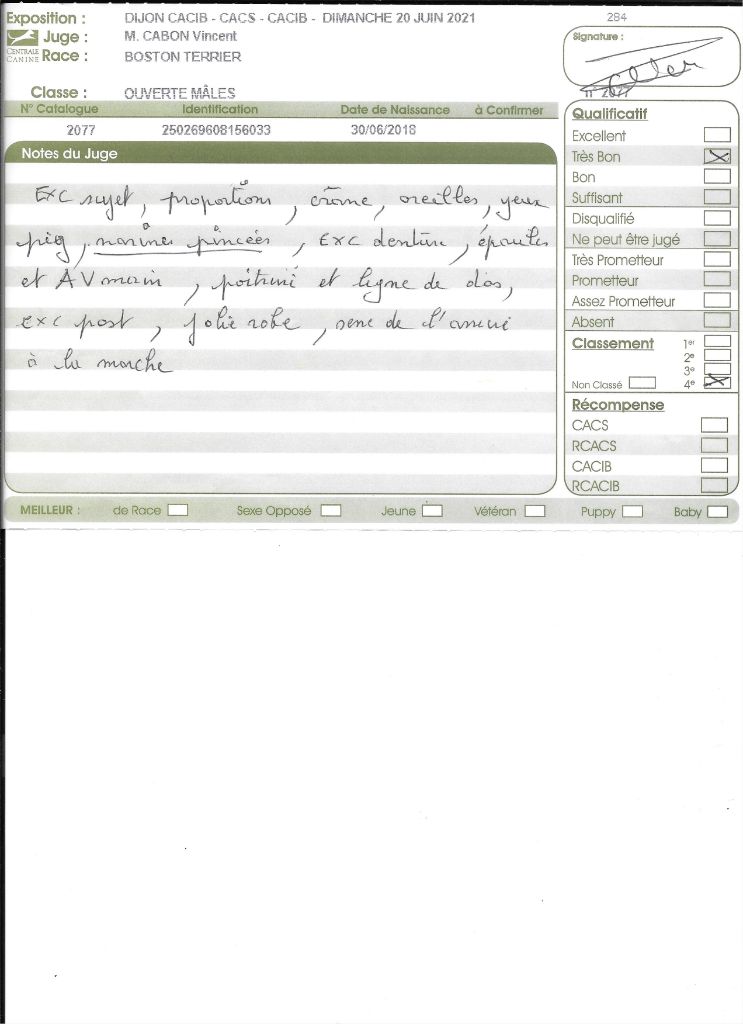 Exposition : DIJON CACIB - CACS - CACIB - DIMANCHE 20 JUIN 2021
284
CENTRALE CANINE
Juge : M. CABON Vincent
Race : BOSTON TERRIER
Classe : OUVERTE MÂLES
Signature :
n° 2077
N° Catalogue Identification Date de Naissance à Confirmer
2077 250269608156033 30/06/2018
Notes du Juge
Exc sujet, proportions, crâne, oreilles, yeux
pig, narines pincées, Exc denture, épaules
et AV main, poitrine et ligne de dos,
exc post, jolie robe, de l'
à la marche
Qualificatif
Excellent
Très Bon
Bon
Suffisant
Disqualifié
Ne peut être jugé
Très Prometteur
Prometteur
Assez Prometteur
Absent
Classement 1er
2e
3e
Non Classé 4e
Récompense
CACS
RCACS
CACIB
RCACIB
MEILLEUR : de Race Sexe Opposé Jeune Vétéran Puppy Baby